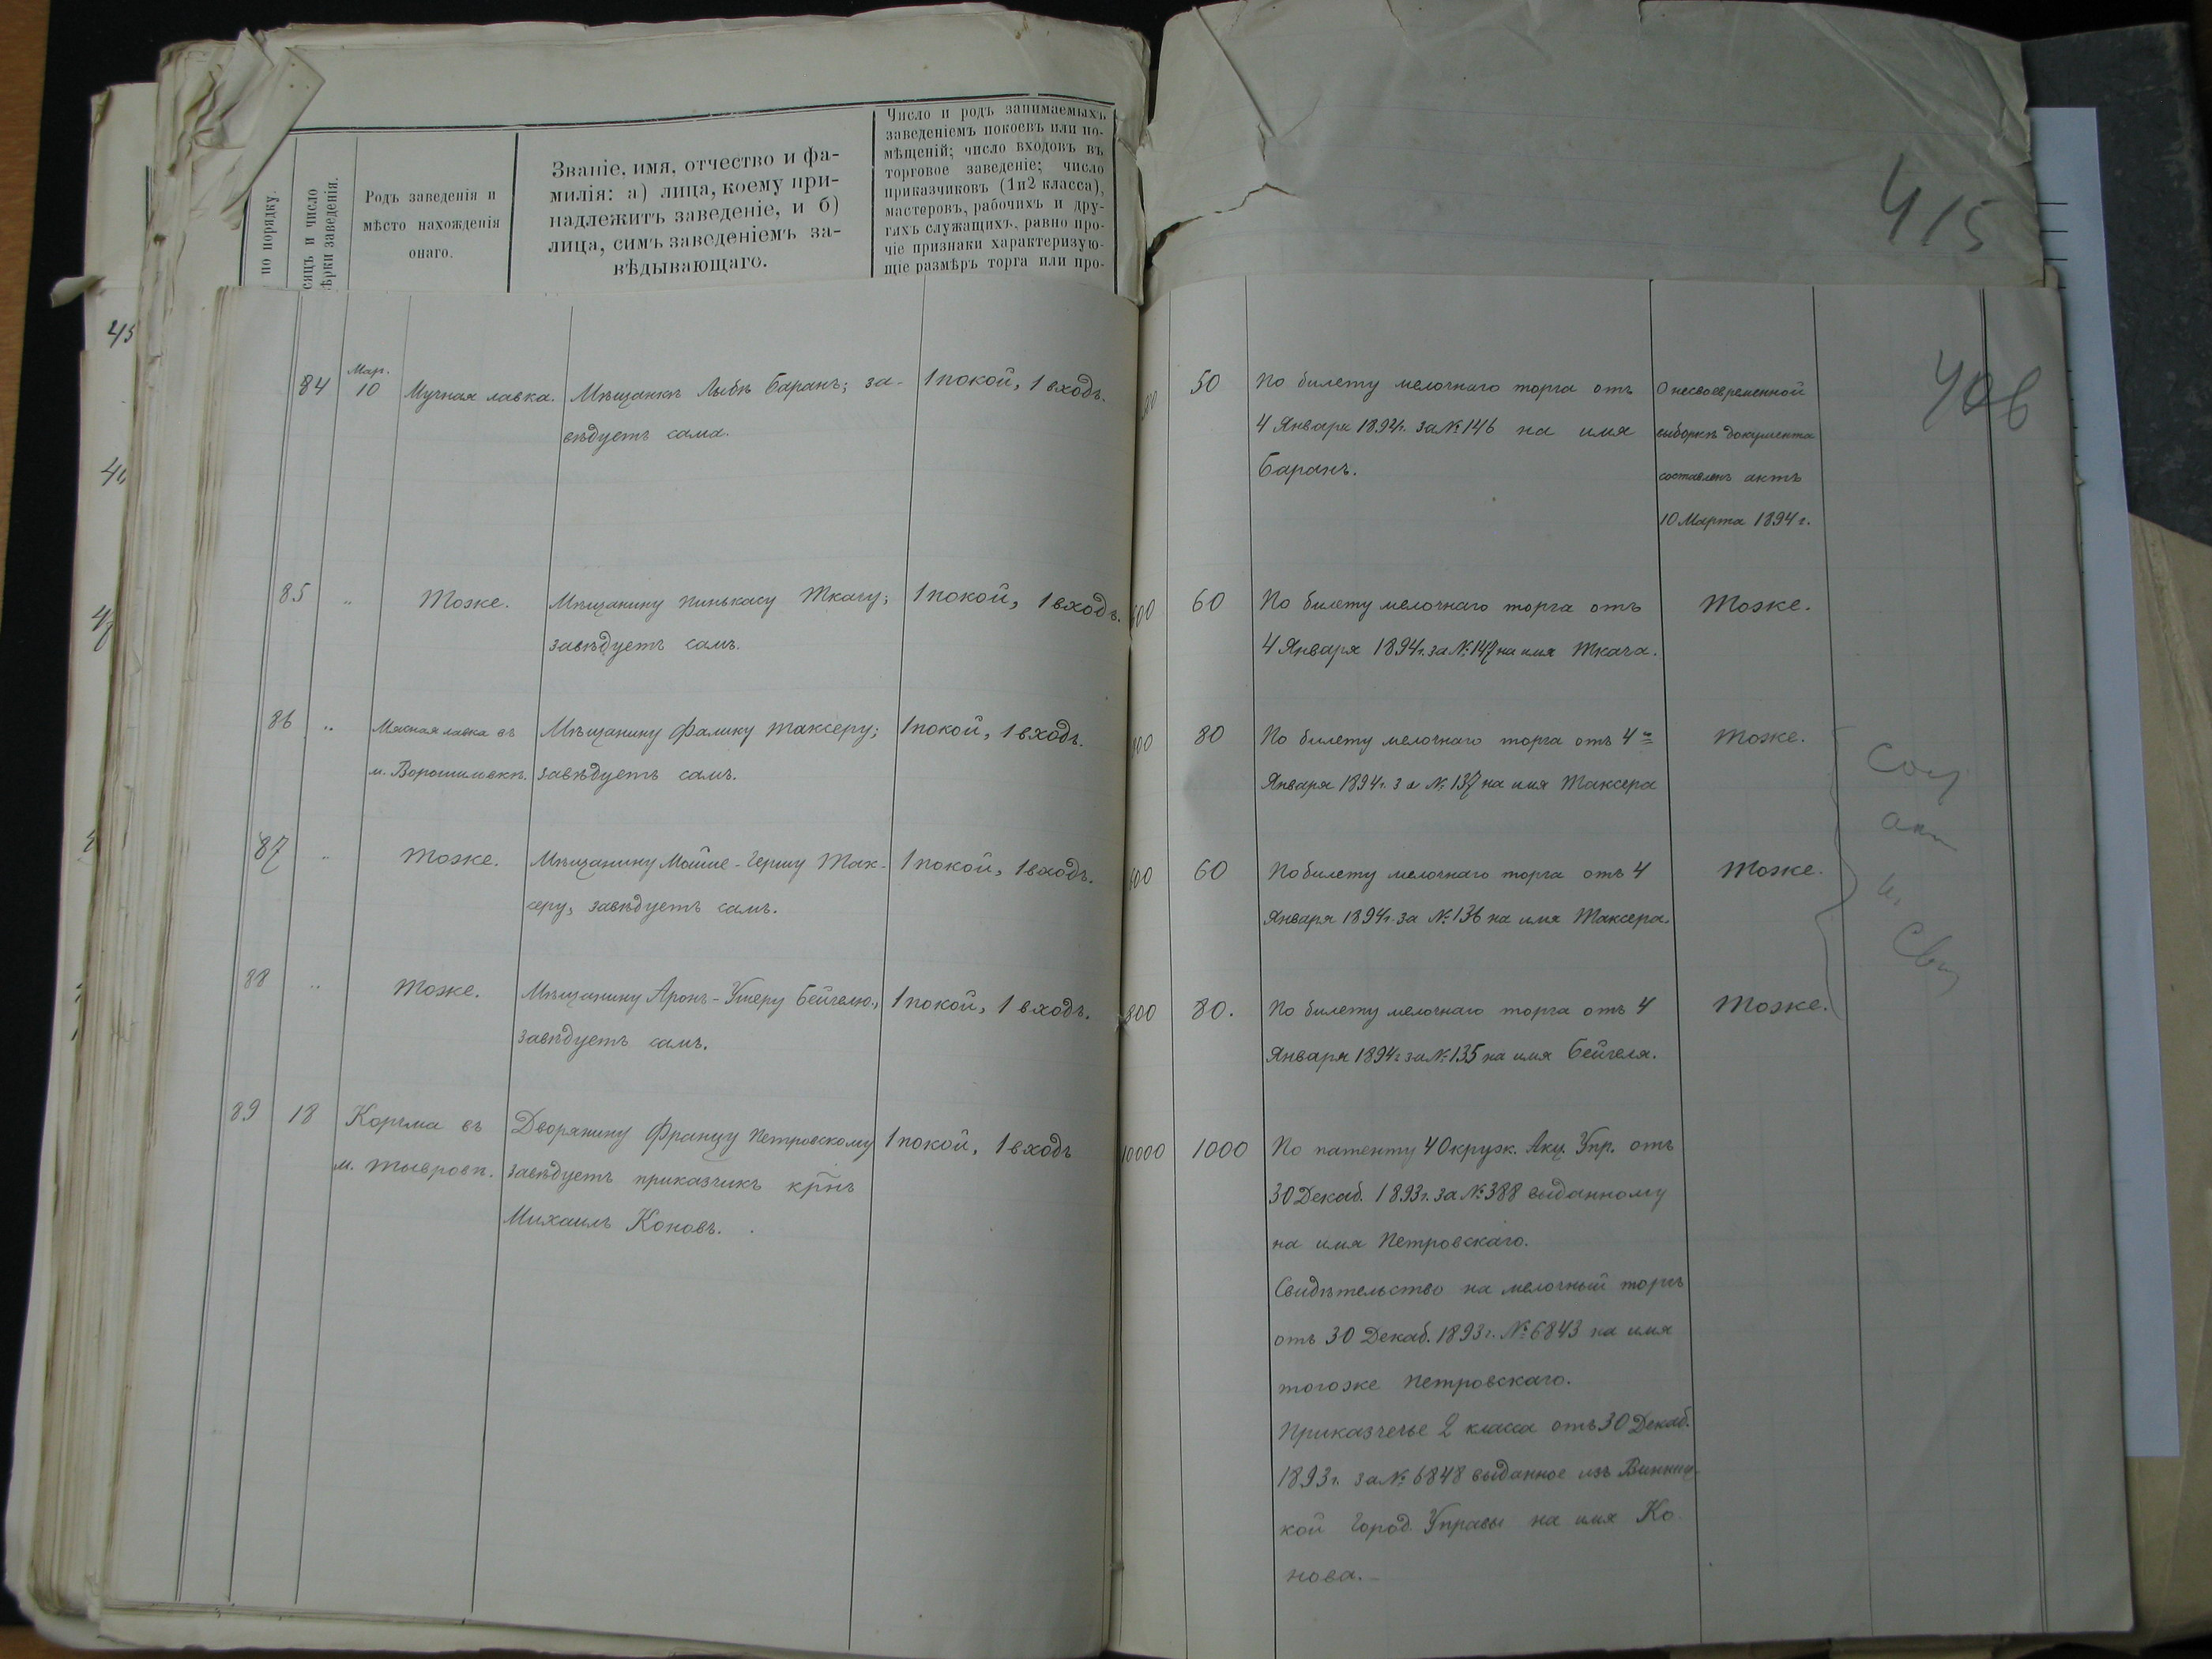 по порядку.
сяцъ и число
ѣрки заведенія.
Родъ заведенія и
мѣсто нахожденія
онаго.
Званіе, имя, отчество и фа-
милія: а) лица, коему при-
надлежитъ заведеніе, и б)
лица, симъ заведеніемъ за-
вѣдывающаго.
Число и родъ занимаемыхъ
заведеніемъ покоевъ или по-
мѣщеній; число входовъ въ
торговое заведеніе; число
приказчиковъ (1 и 2 класса),
мастеровъ, рабочихъ и дру-
гихъ служащихъ, равно про-
чіе признаки характеризую-
щіе размѣръ торга или про-
415
406
84
Мар.
10
Мучная лавка.
Мѣщанкѣ Лыбѣ Баранъ; за-
вѣдуетъ сама.
1 покой, 1 входъ.
50
По билету мелочнаго торга отъ
4 Января 1894г. за № 146 на имя
Баранъ.
О несвоевременной
выборкѣ документа
составленъ актъ
10 Марта 1894 г.
85
"
Тоже.
Мѣщанину Пинькасу Ткачу;
завѣдуетъ самъ.
1 покой, 1 входъ.
600
60
По билету мелочнаго торга отъ
4 Января 1894г. за № 147 на имя Ткача.
Тоже.
86
"
Мясная лавка въ
м. Ворошиловкѣ.
Мѣщанину Фалику Таксеру;
завѣдуетъ самъ.
1 покой, 1 входъ.
800
80
По билету мелочнаго торга отъ 4го
Января 1894г. за № 137 на имя Таксера
Тоже.
87
"
Тоже.
Мѣщанину Мойше-Гершу Так-
серу, завѣдуетъ самъ.
1 покой, 1 входъ.
600
60
По билету мелочнаго торга отъ 4
Января 1894г. за № 136 на имя Таксера.
Тоже.
88
"
Тоже.
Мѣщанину Аронъ-Ушеру Бейгелю.,
завѣдуетъ самъ.
1 покой, 1 входъ.
800
80.
По билету мелочнаго торга отъ 4
Января 1894г. за № 135 на имя Бейгеля.
Тоже.
89
18
Корчма въ
м. Тывровѣ.
Дворянину Францу Петровскому
завѣдуетъ приказчикъ крнъ
Михаилъ Коновъ.
1 покой, 1 входъ
10000
1000
По патенту 4 Окруж. Акц. Упр. отъ
30 Декаб. 1893г. за № 388 выданному
на имя Петровскаго.
Свидѣтельство на мелочный торгъ
отъ 30 Декаб. 1893г. № 6843 на имя
тогоже Петровскаго.
Приказчечье 2 класса отъ 30 Декаб.
1893г. за № 6848 выданное изъ Винниц-
кой Город. Управы на имя Ко-
нова.